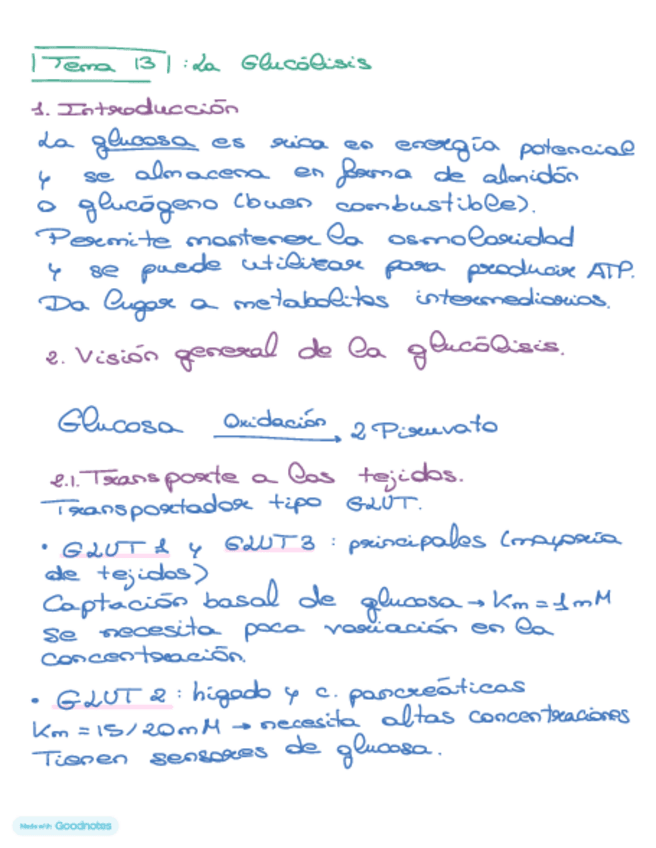 Tema 13 : La Glucólisis
1. Introducción
La glucosa es rica en energía potencial
y se almacena en forma de almidón
o glucógeno (buen combustible).
Permite mantener la osmolaridad
y se puede utilizar para producir ATP.
Da lugar a metabolitos intermediarios.
2. Visión general de la glucólisis.
Glucosa Oxidación → 2 Piruvato
2.1. Transporte a los tejidos.
Transportador tipo GLUT.
• GLUT 1 y GLUT 3 : principales (mayoría
de tejidos)
Captación basal de glucosa → Km = 1 mM
Se necesita poca variación en la
concentración.
• GLUT 2 : hígado y c. pancreáticas
Km = 15/20 mM → necesita altas concentraciones
Tienen sensores de glucosa.
Made with Goodnotes